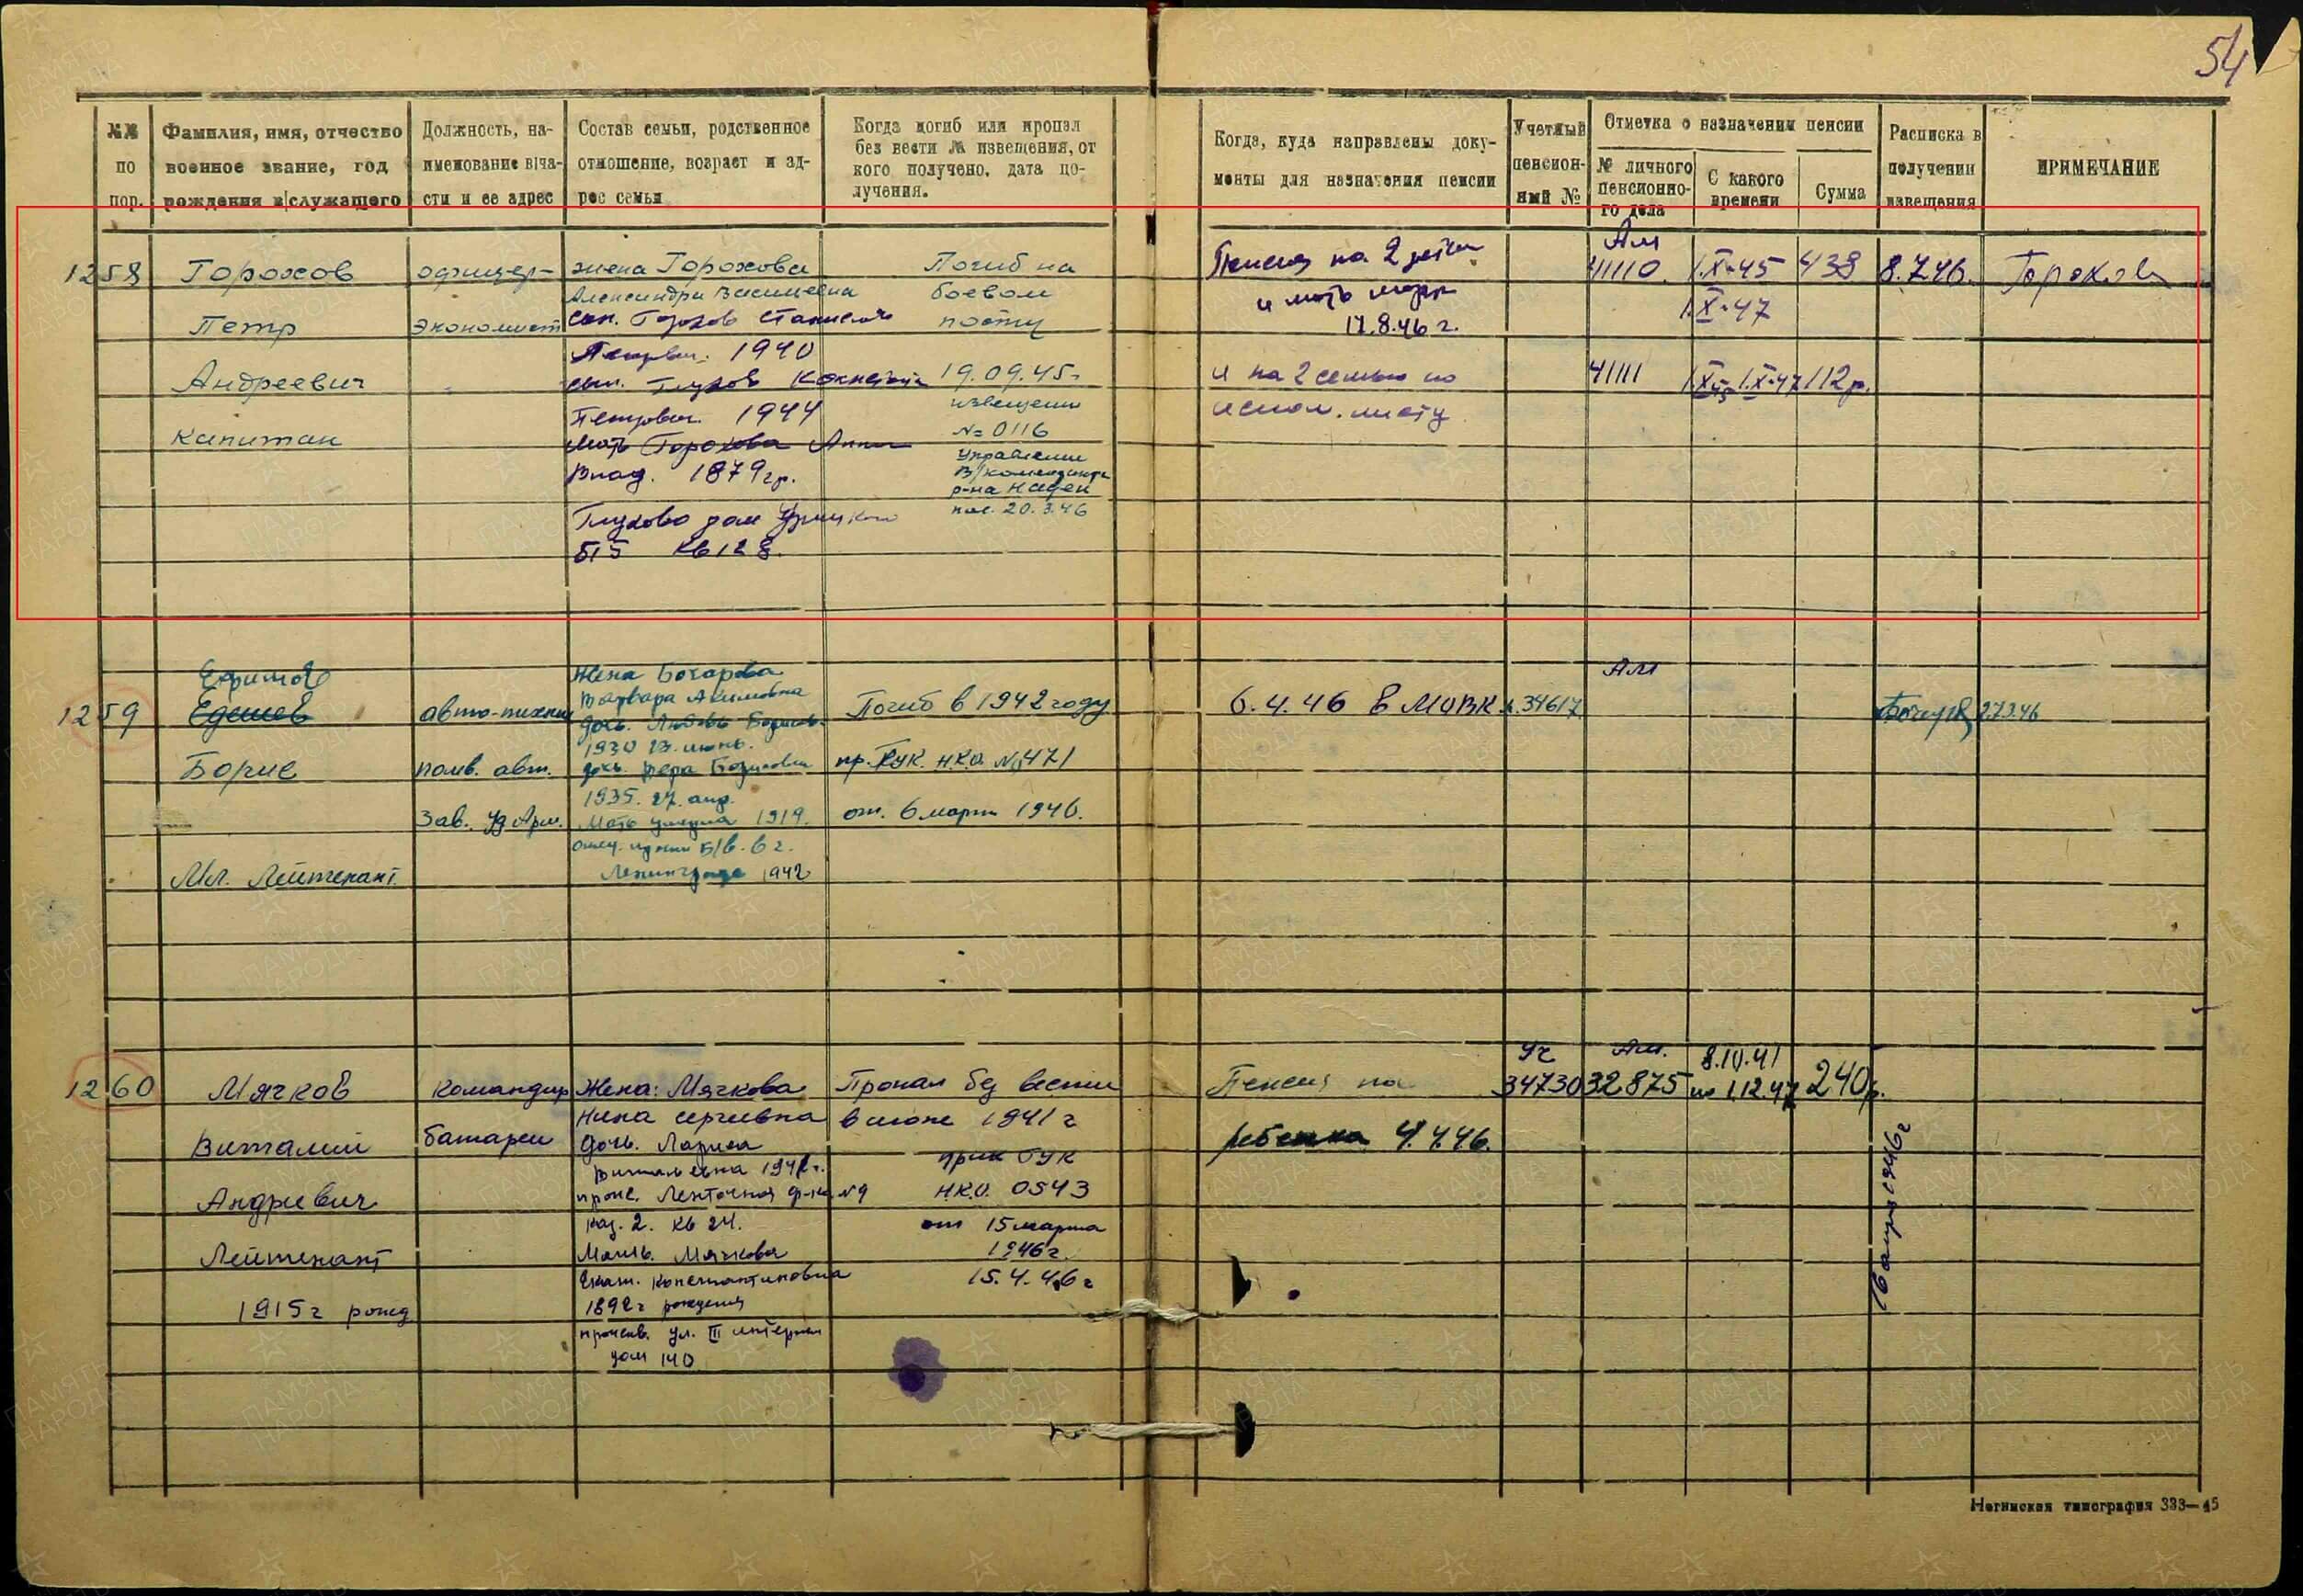 54
№№ по пор.
Фамилия, имя, отчество военное звание, год рождения в/служащего
Должность, наименование в/части и ее адрес
Состав семьи, родственное отношение, возраст и адрес семьи
Когда погиб или пропал без вести № извещения, от кого получено, дата получения.
Когда, куда направлены документы для назначения пенсии
Учетный пенсионный №
Отметка о назначении пенсии
№ личного пенсионного дела
С какого времени
Сумма
Расписка в получении извещения
ПРИМЕЧАНИЕ
1258
Горохов
Петр
Андреевич
капитан
офицер-
экономист
жена Горохова
Александра Васильевна
сын. Горохов
Петрович. 1940
сын.
Петрович. 1944
мать Горохова Анна
Влад. 1879 г.р.
Глухово дом
515 кв 128.
Погиб на
боевом
посту
19.09.45г
извещение
№ 0116
Управление
р-на
пол. 20.3.46
Пенсия на 2 детей
и мать
17.8.46 г.
и на 2 семью по
испол. листу
Ам
41110.
1.X-45
438
8.7.46.
Горохова
1.X-47
41111
112р.
1259
Ефимов
Борис
Мл. Лейтенант
авто-техник
помв. авт.
Зав.
Жена Бочарова
Варвара Акимовна
дочь. Любовь Борисов.
1930 23. июнь.
дочь. Вера Борисовна
1935. 27. апр.
Мать умерла 1919.
Ленинграде 1942
Погиб в 1942 году
пр. ГУК. Н.К.О. №471
от. 6 марта 1946.
6.4.46 в МОВК
34617
Ам
27.3.46
1260
Мячков
Виталий
Андреевич
Лейтенант
1915г рожд
командир
батареи
Жена: Мячкова
Нина сергевна
дочь. Лариса
Витальевна
прож. Ленточная ф-ка №9
каз. 2. кв 24.
Мать. Мячкова
Екат. Константиновна
1892г рождения
прожив. ул. III интернац
дом 140
Пропал без вести
в июне 1941 г
прик ГУК
Н.К.О. 0543
от 15 марта
1946г.
15.4.46г
Пенсия на
ребенка 4.4.46.
Уч
34730
Ам.
32875
8.IV.41
по 1.12.47
240р.
16 апреля 1946г
Ногинская типография 333—45